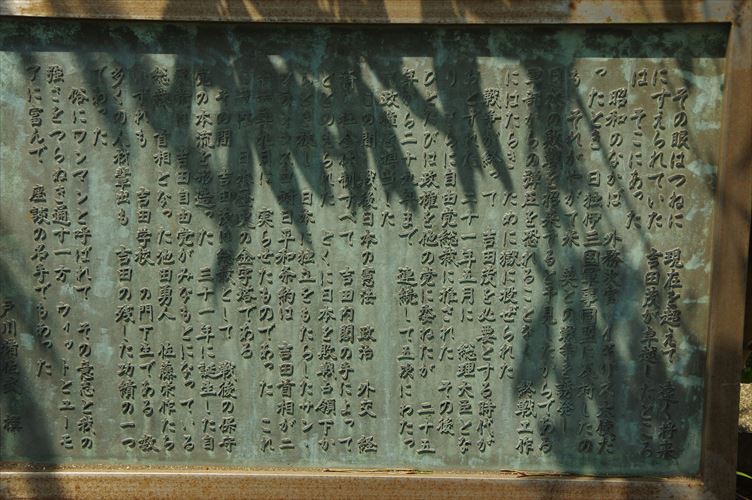 その眼はつねに　現在を超えて　遠く将来
にすえられていた　吉田茂が卓越したところ
は　そこにあった
昭和のなかば　外務次官　イギリス大使だ
ったとき　日独伊三国軍事同盟に反対したの
も　それがやがて米　英との戦争を誘発し
日本の敗戦を招来すると予見したからである
軍部からの弾圧を恐れることなく　終戦工作
にはたらき　ために獄に投ぜられた
戦争が終って　吉田茂を必要とする時代が
おとずれた　二十一年五月に　総理大臣とな
り　さらに自由党総裁に推された　その後
ひとたびは政権を他の党に委ねたが　二十五
年から二十九年まで　連続して五次にわたっ
政権を担当した
この間　戦後日本の憲法　政治　外交　経
済　社会体制すべて　吉田内閣の手によって
ととのえられた　とくに日本を敗戦占領下か
らとき放し　日本に独立をもたらしたサン
フランシスコ対日平和条約は　吉田首相が二
実らせたものであった　これ
日本歴史の金字塔である
その間　吉田茂は総裁として　戦後の保守
党の本流を形造った　三十一年に誕生した自
吉田自由党がみなもとになっている
総裁　首相となった池田勇人　佐藤栄作たち
いずれも　吉田学校　の門下生である
多くの人材輩出も　吉田の残した功績の一つ
であった
俗にワンマンと呼ばれて　その意志と我の
強さをつらぬき通す一方　ウィットとユーモ
アに富んで　座談の名手でもあった
戸川猪佐武　撰